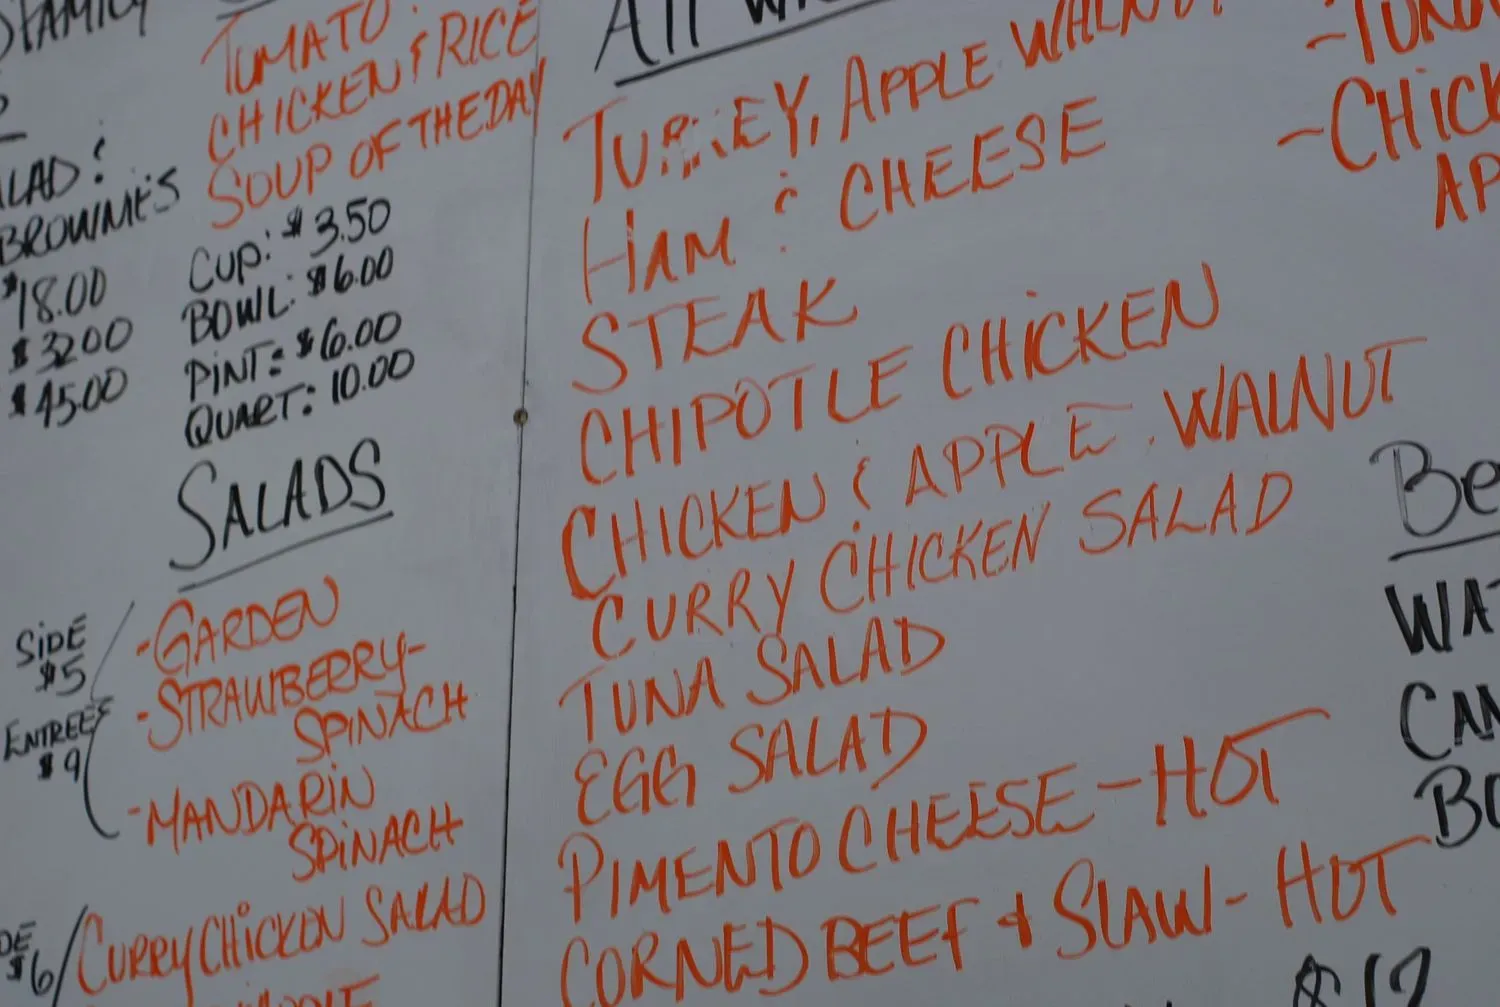 FAMILY
SALAD &
BROWNIES
$18.00
$32.00
$45.00
TOMATO
CHICKEN & RICE
SOUP OF THE DAY
CUP: $3.50
BOWL: $6.00
PINT: $6.00
QUART: 10.00
SALADS
SIDE
$5
ENTREES
$9
-GARDEN
-STRAWBERRY-
SPINACH
-MANDARIN
SPINACH
$6/CURRY CHICKEN SALAD
All
TURKEY, APPLE WALNUT
HAM & CHEESE
STEAK
CHIPOTLE CHICKEN
CHICKEN & APPLE WALNUT
CURRY CHICKEN SALAD
TUNA SALAD
EGG SALAD
PIMENTO CHEESE - HOT
CORNED BEEF & SLAW - HOT
-TUNA
-CHICK
AP
Be
WAT
CAN
BO